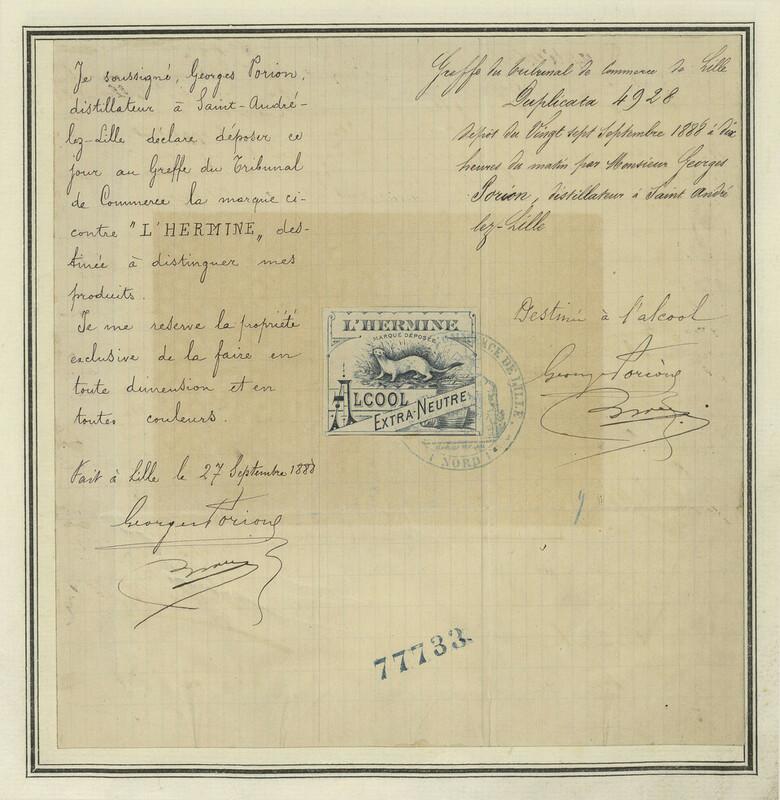 Je soussigné, Georges Porion,
distillateur à Saint-André-
lez-Lille déclare déposer ce
jour au Greffe du Tribunal
de Commerce la marque ci-
contre "L'HERMINE„ des-
tinée à distinguer mes
produits.
Je me reserve la propriété
exclusive de la faire en
toute dimension et en
toutes couleurs.
Fait à Lille le 27 Septembre 1888
Georges Porion
Greffe du tribunal de commerce de Lille
Duplicata 4928
depôt du Vingt sept Septembre 1888 à dix
heures du matin par Monsieur Georges
Porion, distillateur à Saint André
lez-Lille
Destinée à l'alcool
Georges Porion
L'HERMINE
MARQUE DÉPOSÉE
ALCOOL
EXTRA-NEUTRE
DE LILLE
(NORD)
77733